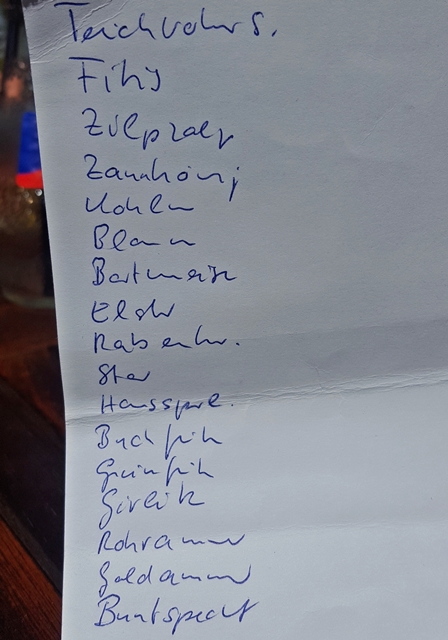 Teichrohrs.
Fitis
Zilpzalp
Zaunkönig
Kohlm
Blaum
Bartmeise
Elster
Rabenkr.
Star
Haussper.
Buchfink
Grünfink
Girlitz
Rohrammer
Goldammer
Buntspecht